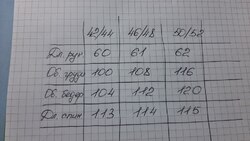 42/44 46/48 50/52
Дл. рук 60 61 62
Об. груди 100 108 116
Об. бедер 104 112 120
Дл. спин 113 114 115